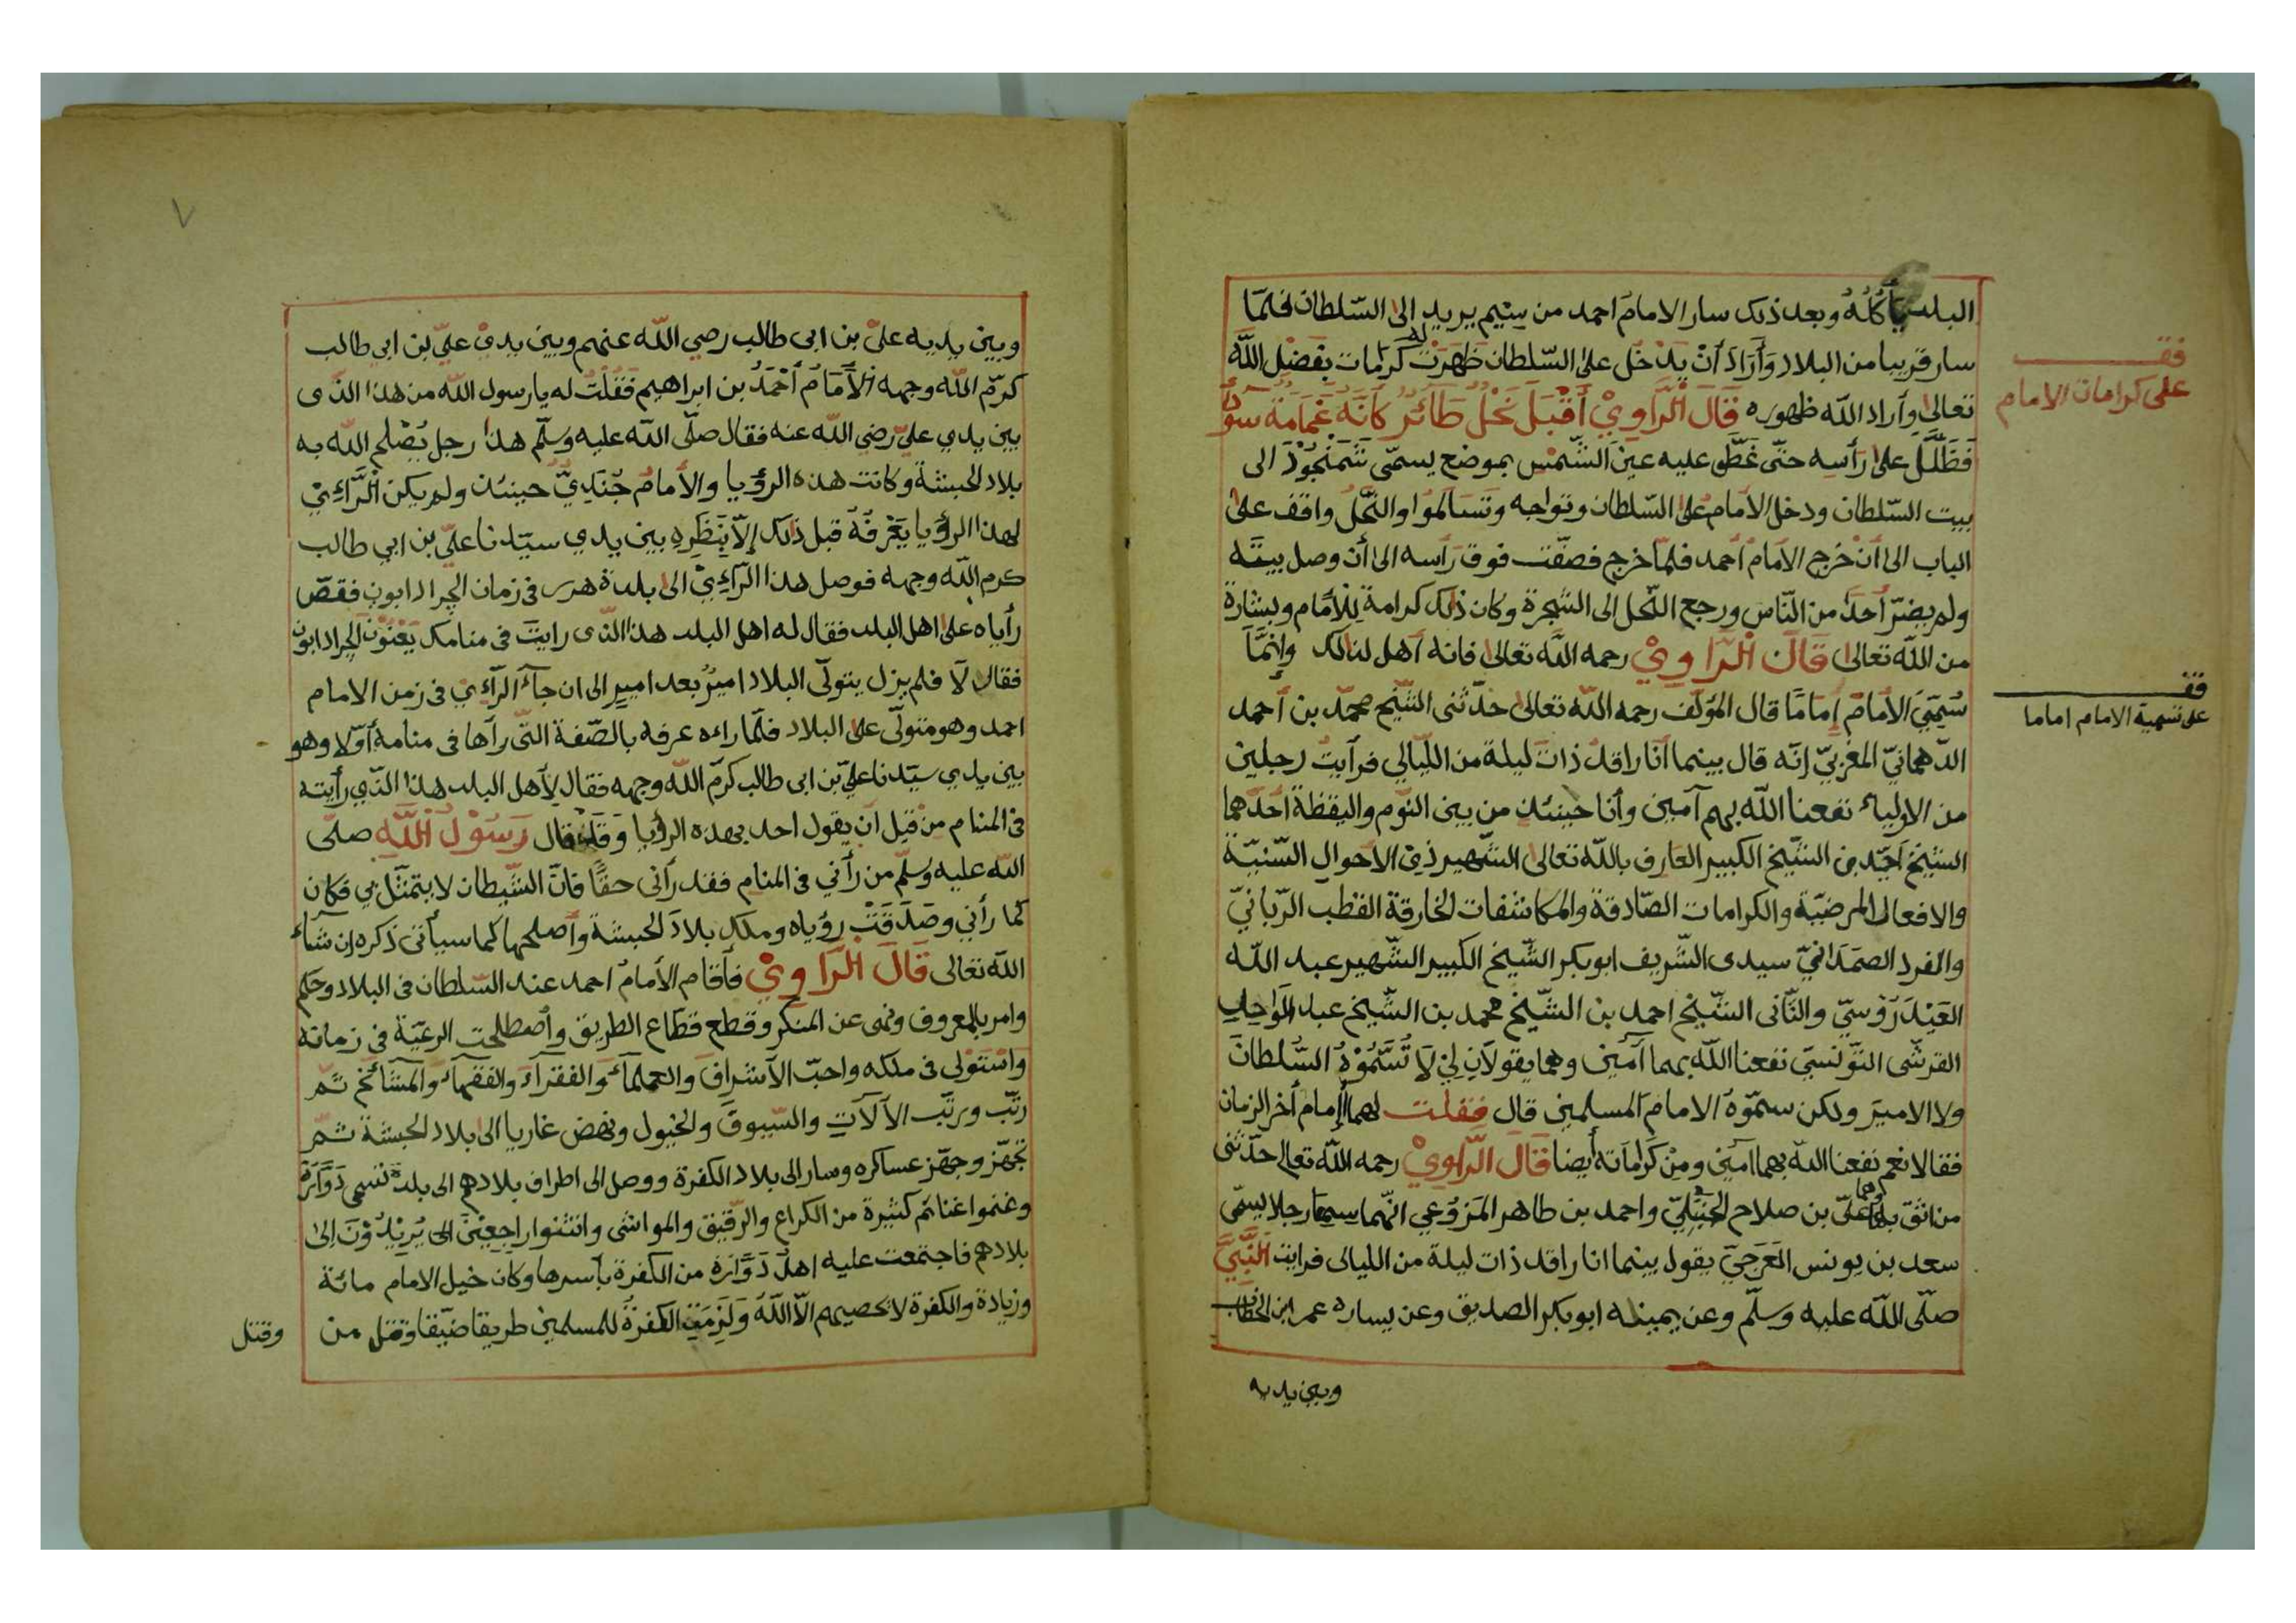 البلد يأكله وبعد ذلك سار الامام احمد من سيم يريد الى السّلطان فلمّا
سار قريبا من البلاد وَأَرَادَ أنْ يدْخل على السّلطان ظهرَتْ له كرامات بفضل اللّه
تعالى وأراد اللّه ظهوره قَالَ الرَّاوِيْ أَقْبَلَ نَحْلٌ طَائِرٌ كَأَنَّهُ غَمَامَةٌ سَوْدَاءُ
فَظَلَّلَ على رَأسِه حتّى غَطّى عليه عينَ الشّمْس بموضع يسمّى الى
بيت السّلطان ودخل الأمام على السّلطان وتواجه وتَسَالَمُوا والنَّحْلُ واقف على
الباب الى أنْ خرج الأمام أحمد فلمّا خرج فصفّت فوق رَأسه الى أن وصل بيتَه
ولم يضرّ أحدًا من النّاس ورجع النّحل الى الشجرة وكان ذلك كرامة لِلْأمام وبشارة
من اللّه تعالى قَالَ الرَّاوِيْ رحمه اللّه تعالى فانه أهل لذالك وإنّمَا
سُمّيَ الأمام إمَامًا قال المؤلّف رحمه اللّه تعالى حدّثنى الشّيخ محمّد بن أحمد
الدّهمانيّ المغربيّ إنّه قال بينما أنا راقد ذات ليلة من اللّيالي فرأيتُ رجلين
من الاولياء نفعنا اللّه بهم آمين وأنا حينئذ من بين النّوم واليقظة احدُهما
الشيخ احمد بن الشّيخ الكبير العارف باللّه تعالى الشّهير ذي الأحوال السّنيّة
والافعال المرضيّة والكرامات الصّادقة والمكاشفات الخارقة القطب الرّبانيّ
والمفرد الصمَدَانيّ سيدى الشّريف ابوبكر الشّيخ الكبير الشّهير عبد اللّه
العَيْدَرَوْسيّ والثّانى الشّيخ احمد بن الشّيخ محمد بن الشّيخ عبد الواحد
القرشى التّونسيّ نفعنا اللّه بهما آمين وهما يقولَان لي لَا تُسَمُّوْهُ السُّلطانَ
ولا الاميرَ ولكن سمّوهُ الامامَ المسلمين قال فقلت لهما إمام أخر الزمان
فقالا نعم نفعنا اللّه بهما آمين ومِنْ كَرَامَاته أيضا قَالَ الرَّاوِيْ رحمه اللّه تعالى حدّثنى
من اثق به وهما علىّ بن صلاح الجَبَليّ واحمد بن طاهر المَرْوَعي انّهما سمعا رجلا يسمّى
سعد بن يونس العَرَجيّ يقول بينما انا راقد ذات ليلة من الليالى فرايت النَّبِيَّ
صلّى اللّه عليه وسلّم وعن يمينه ابوبكر الصديق وعن يساره عمر ابن الخطاب
وبين يديه
فقـ
على كرامات الامام
فقـ
على تسمية الامام اماما
٧
وبين يديه علىّ بن ابى طالب رضي اللّه عنهم وبين يدىْ علىّ بن ابي طالب
كرّم اللّه وجهه الأَمَامُ أحْمَدُ بن ابراهيم فَقُلْتُ له يا رسول اللّه من هذا الذى
بين يدي عليّ رضي اللّه عنه فقال صلّى اللّه عليه وسلّم هذا رجل يُصْلح اللّه به
بلاد الحبشة وكانت هذه الرؤيا والأمامُ جُنْدِيٌّ حينئذ ولم يكن الرَّاءِيْ
لهذا الرؤيا يَعْرفَهُ قبل ذلك إلّا بِنَظَرِهِ بين يدي سيّدنا علىّ بن ابي طالب
كرم اللّه وجهه فوصل هذا الرّاءِيْ الى بلدة هرر فى زمان الجراد ابون فقصّ
رأياه على اهل البلد فقال له اهل البلد هذا الذى رايتَ فى منامك يَعْنُوْن الجراد ابون
فقال لَا فلم يزل يتولّى البلاد اميرٌ بعد امير الى ان جآء الرّآءِىْ فى زمن الامام
احمد وهو متولّى على البلاد فلمّا راءه عرفه بالصّفة التّى رآها فى منامه أوّلا وهو
بين يدي سيّدنا عليّ بن ابى طالب كرّم اللّه وجهه فقال لِأهل البلد هذا الذّي رأيته
فى المنام من قبل أن يقول احد بهذه الرؤيا وَقَدْ قال رَسُوْلُ اللَّهِ صلّى
اللّه عليه وسلّم من رأني فى المنام فقد رأنى حقًّا فانّ الشّيطان لا يتمثّل بي فكان
كما رأني وصَدَقَتْ رؤياه وملك بلادَ الحبشة وأصلحها كما سيأتى ذكره إن شاء
اللّه تعالى قَالَ الرَّاوِيْ فأقام الأمامُ احمد عند السّلطان فى البلاد وحكم
وامر بالمعروف ونهى عن المنكر وقطع قطّاع الطريق وأصطلحت الرعيّة فى زمانه
واسْتولى فى ملكه واحبّ الأشرافَ والعلمآءَ والفقراءَ والفقهآءَ والمشائخ ثمّ
رتّب ورتّب الآلَاتِ والسّيوفَ والخيول ونهض غازيا الى بلاد الحبشة ثمّ
تجهّز وجهّز عساكره وسار الى بلاد الكفرة ووصل الى اطراف بلادهم الى بلدة تسمى دَوَّارَهْ
وغنموا غنائم كثيرة من الكراع والرّقيق والمواشى وانثنوا راجعينَ الى يُرِيْدُوْنَ إلى
بلادهم فاجتمعت عليه اهلُ دَوَّارَهْ من الكفرة بأسرها وكان خيل الامام مائة
وزيادة والكفرة لا يحصيهم الّا اللّهُ وَلَزِمَتِ الكفرةُ للمسلمين طريقا ضيّقا وقتل من
وقتل